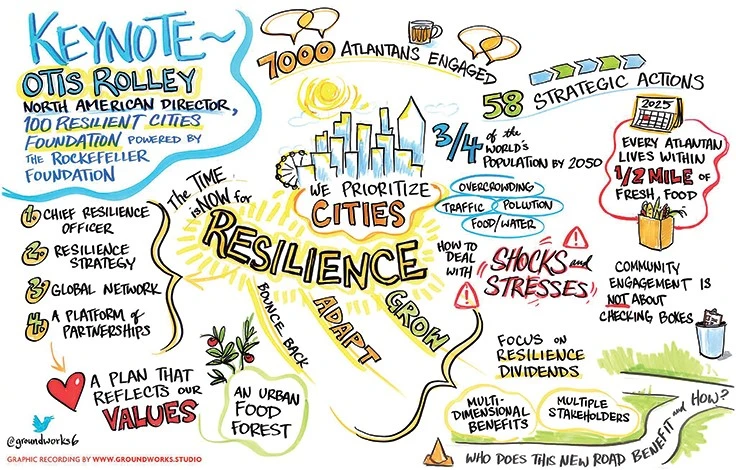 KEYNOTE~
OTIS ROLLEY
NORTH AMERICAN DIRECTOR,
100 RESILIENT CITIES
FOUNDATION POWERED BY
THE ROCKEFELLER
FOUNDATION
7000 ATLANTANS ENGAGED
58 STRATEGIC ACTIONS
2025
EVERY ATLANTAN
LIVES WITHIN
1/2 MILE of
FRESH FOOD
3/4 of the
WORLD'S
POPULATION BY 2050
WE PRIORITIZE
CITIES
OVERCROWDING
TRAFFIC POLLUTION
FOOD/WATER
The TIME
is NOW for
RESILIENCE
BOUNCE BACK
ADAPT
GROW
1. CHIEF RESILIENCE
OFFICER
2. RESILIENCE
STRATEGY
3. GLOBAL NETWORK
4. A PLATFORM of
PARTNERSHIPS
A PLAN THAT
REFLECTS OUR
VALUES
AN URBAN
FOOD
FOREST
HOW TO
DEAL
WITH
SHOCKS and
STRESSES
COMMUNITY
ENGAGEMENT IS
NOT ABOUT
CHECKING BOXES
FOCUS ON
RESILIENCE
DIVIDENDS
MULTI-
DIMENSIONAL
BENEFITS
MULTIPLE
STAKEHOLDERS
WHO DOES THIS NEW ROAD BENEFIT and HOW?
@groundworks6
GRAPHIC RECORDING BY WWW.GROUNDWORKS.STUDIO